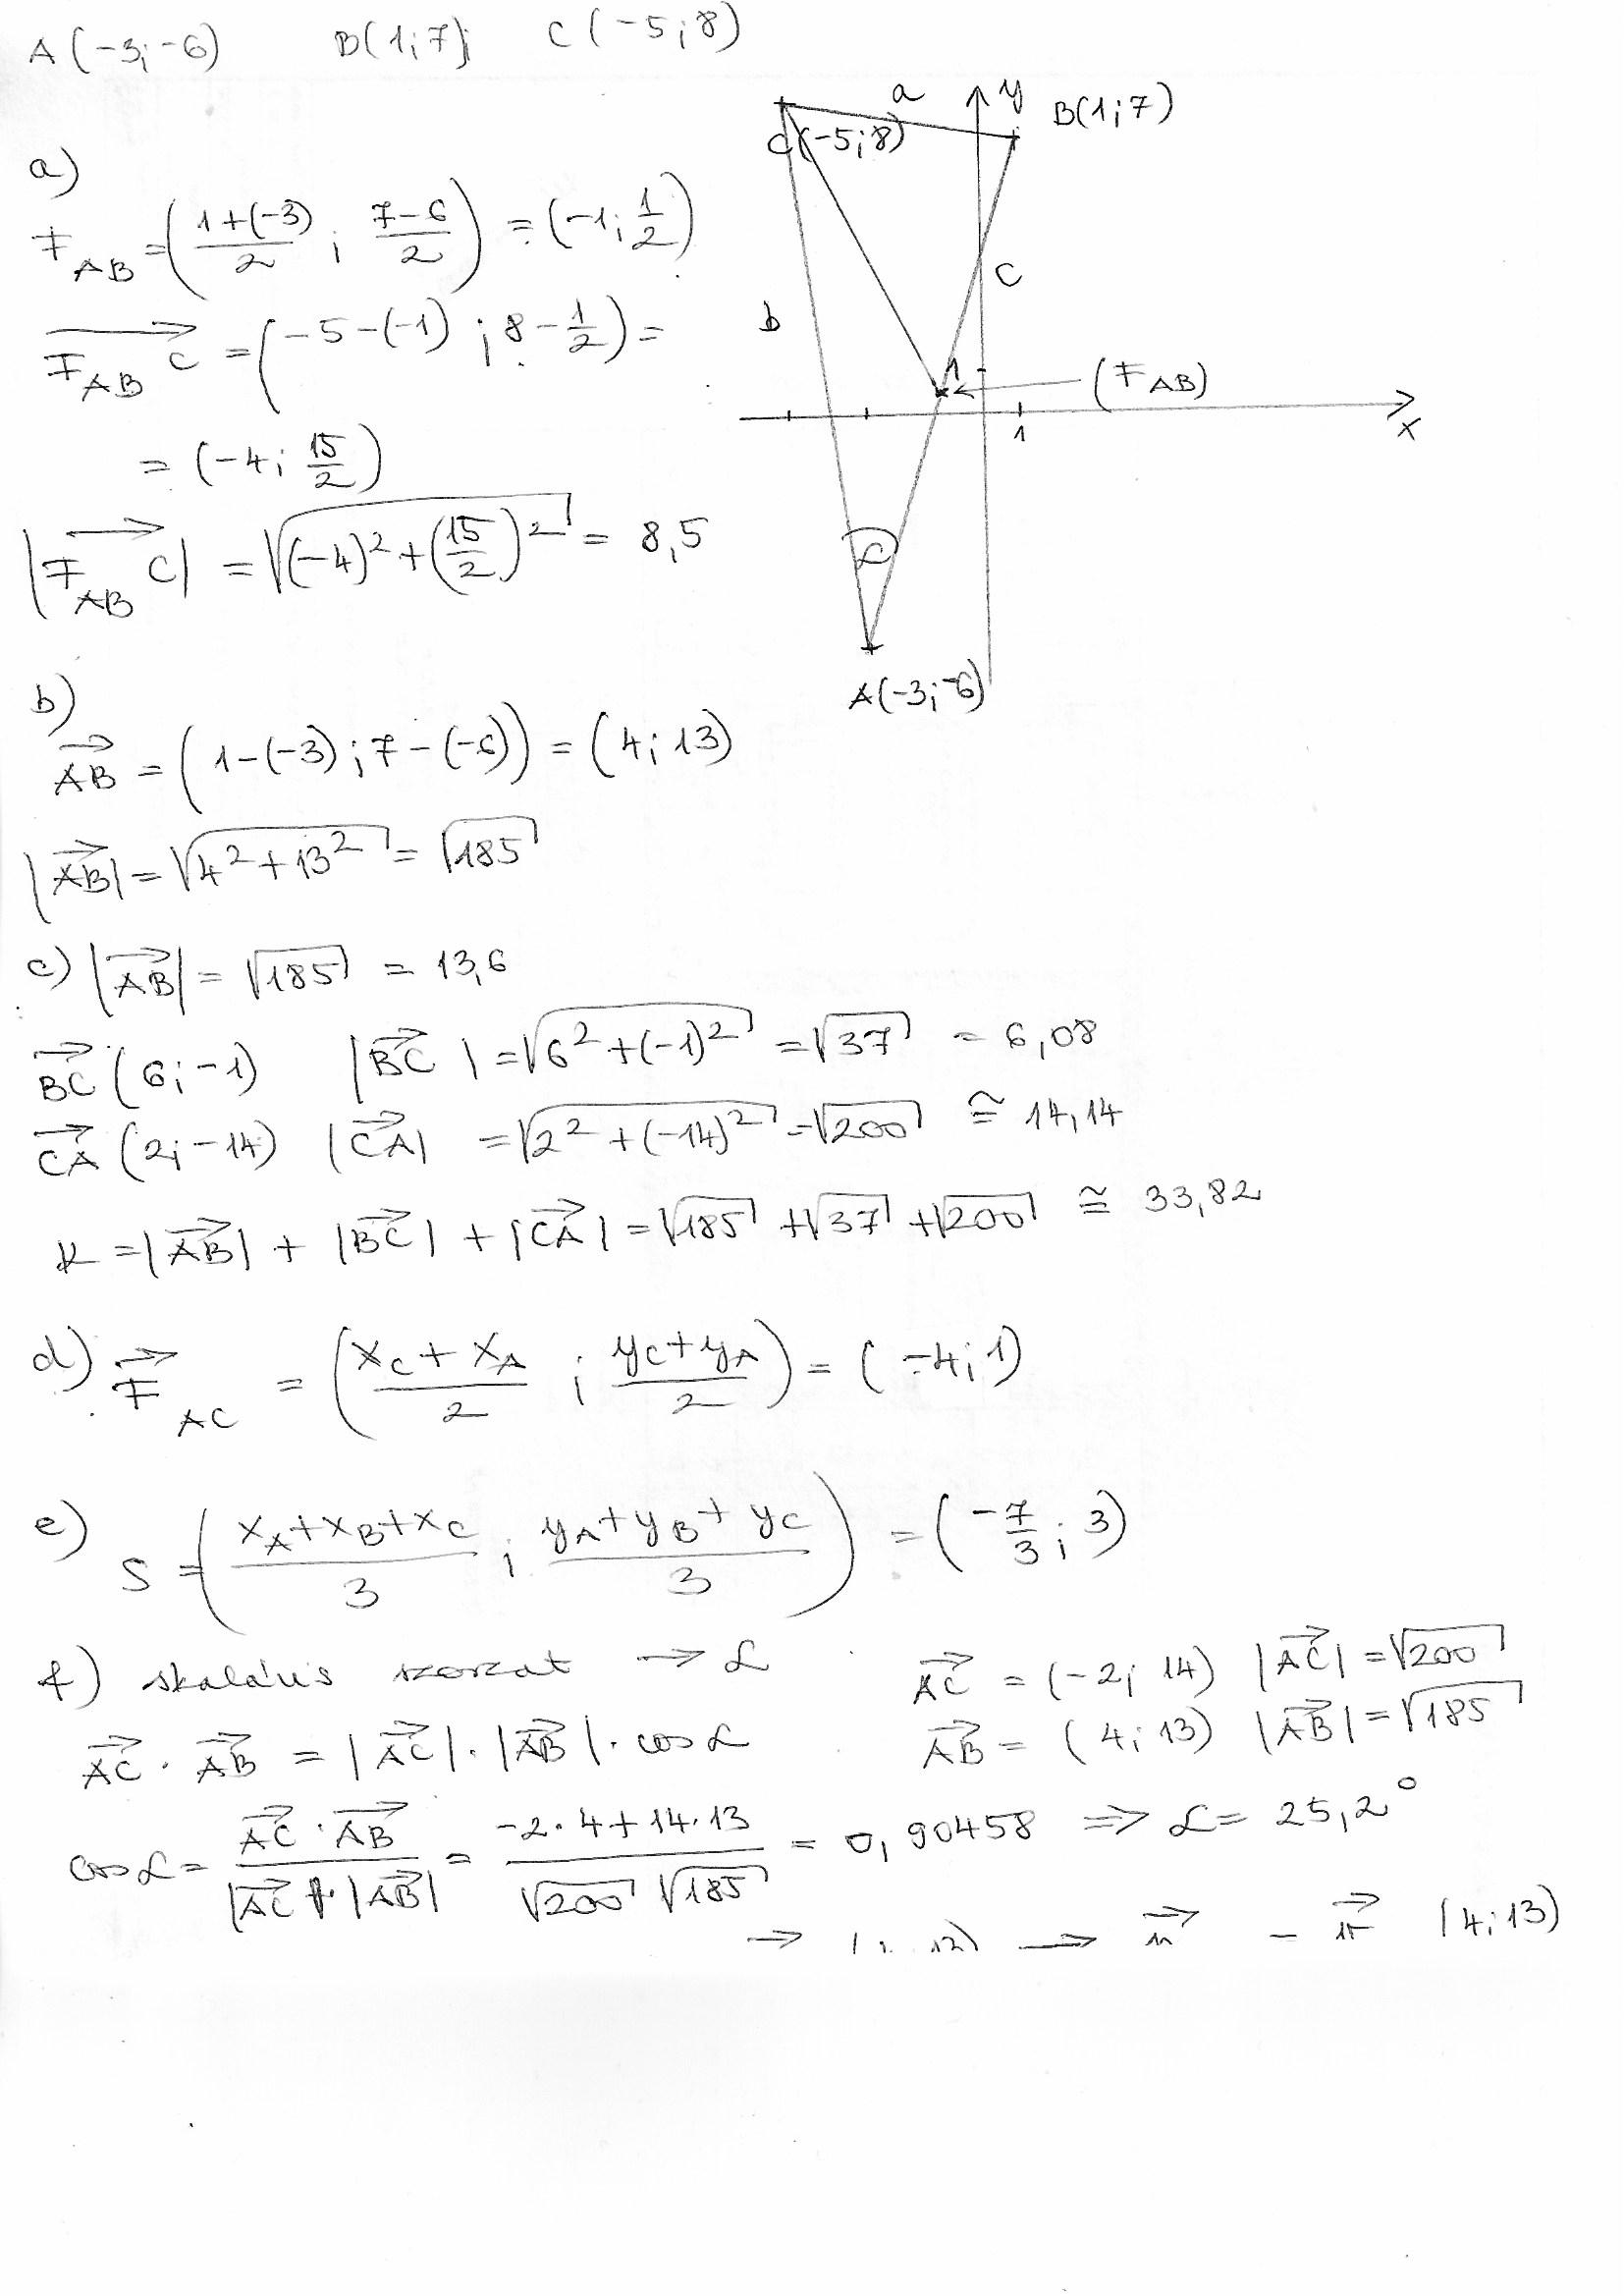 A(-3;-6) B(1;7) C(-5;8)
a y B(1;7)
C(-5;8)
a)
F_AB = ((1+(-3))/2 ; (7-6)/2) = (-1; 1/2)
c
b
F_AB C = (-5-(-1) ; 8 - 1/2) =
1 (F_AB)
1 x
= (-4; 15/2)
|F_AB C| = √((-4)² + (15/2)²) = 8,5
α
A(-3;-6)
b)
AB = (1-(-3); 7-(-6)) = (4; 13)
|AB| = √(4² + 13²) = √185
c) |AB| = √185 = 13,6
BC (6; -1) |BC| = √(6² + (-1)²) = √37 = 6,08
CA (2; -14) |CA| = √(2² + (-14)²) = √200 ≅ 14,14
K = |AB| + |BC| + |CA| = √185 + √37 + √200 ≅ 33,82
d) F_AC = ((x_C + x_A)/2 ; (y_C + y_A)/2) = (-4; 1)
e) S = ((x_A + x_B + x_C)/3 ; (y_A + y_B + y_C)/3) = (-7/3 ; 3)
f) skaláris szorzat → α AC = (-2; 14) |AC| = √200
AC · AB = |AC| · |AB| · cos α AB = (4; 13) |AB| = √185
cos α = (AC · AB)/(|AC| · |AB|) = (-2·4 + 14·13)/(√200 √185) = 0,90458 ⇒ α = 25,2°
(4; 13)